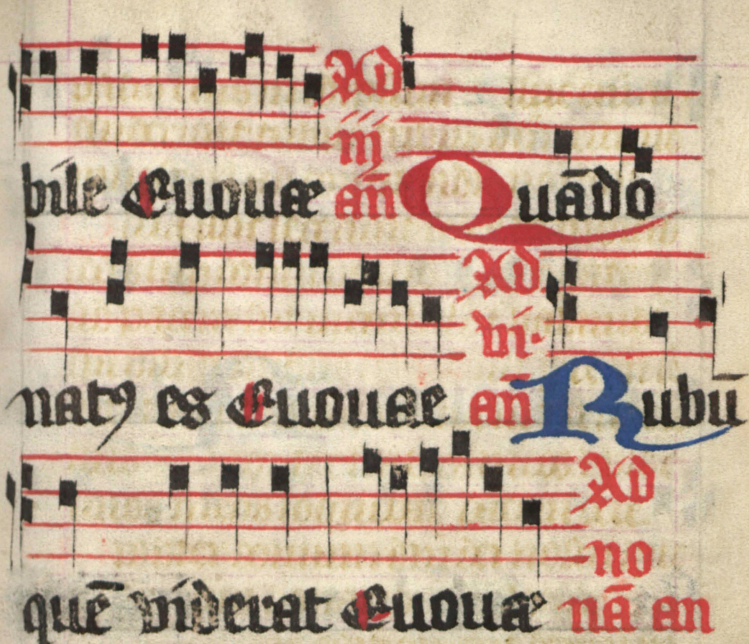 Ad
iij
bile Euouae an̄ Quādo
Ad
vi·
natꝯ es Euouae an̄ Rubū
Ad
no
quē viderat Euouae nā an